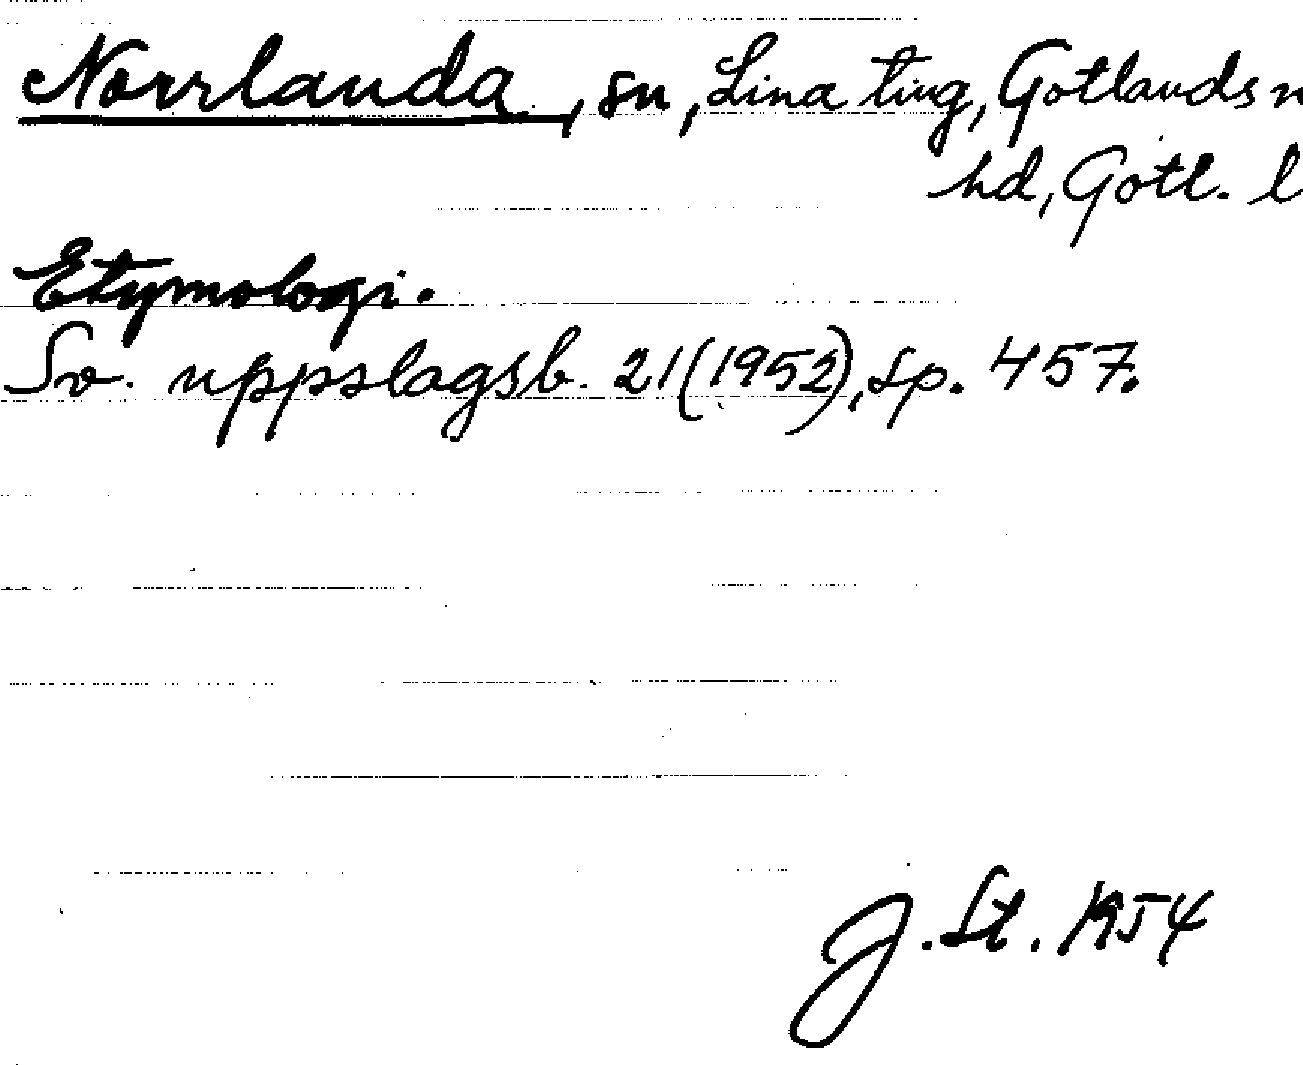 Norrlanda, sn, Lina ting, Gotlands n
hd, Gotl. l
Etymologi.
Sv. uppslagsb. 21 (1952), sp. 457.
J. St. 1954